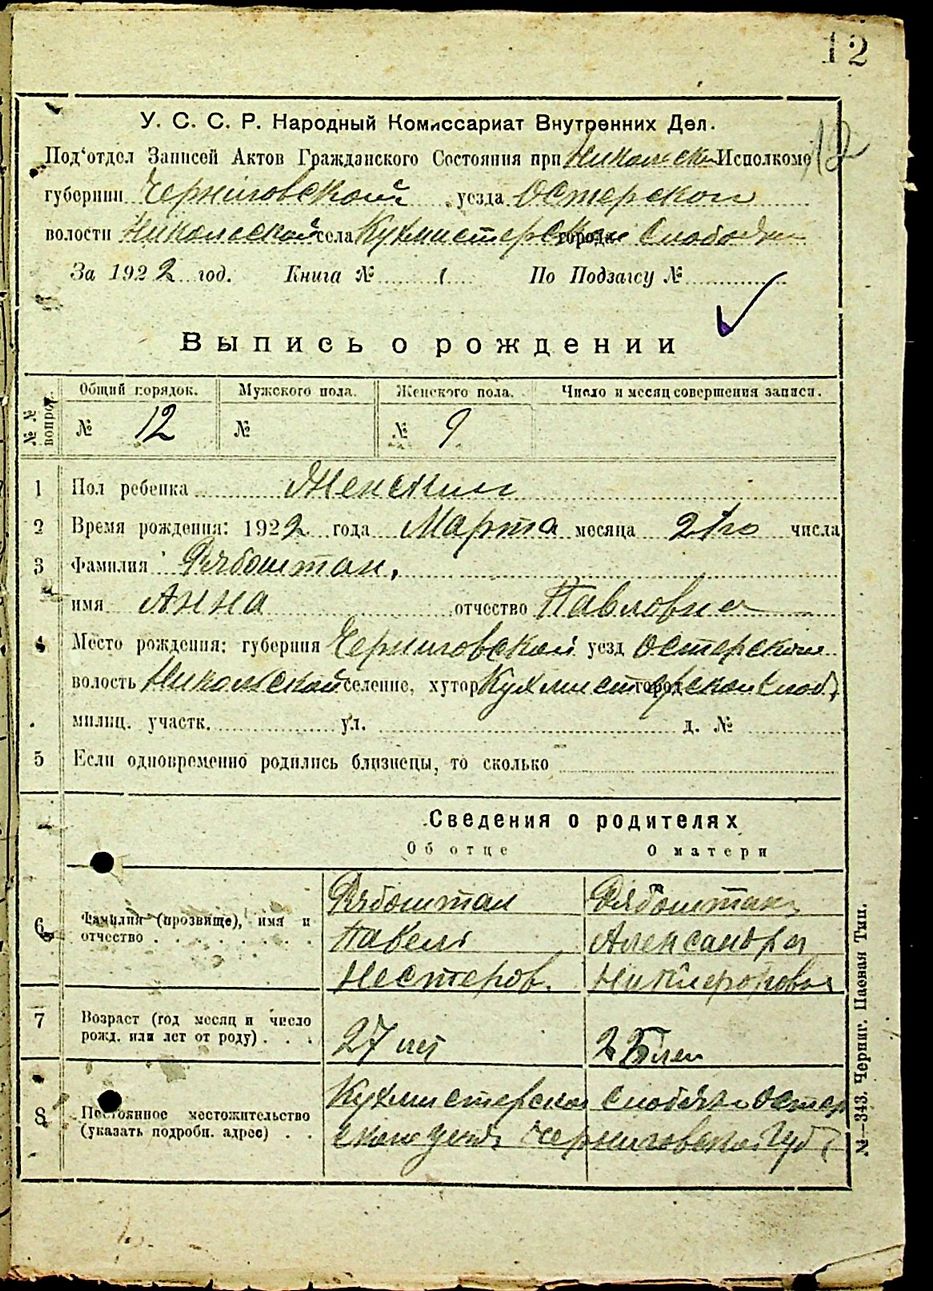 12
12
У. С. С. Р. Народный Комиссариат Внутренних Дел.
Под'отдел Записей Актов Гражданского Состояния при Никольск Исполкоме
губернии Черниговской уезда Остерской
волости Никольской села Кухмистерской города Слободки
За 1922 год. Книга № 1 По Подзагсу №
Выпись о рождении
№ № вопрос. Общий порядок. Мужского пола. Женского пола. Число и месяц совершения записи.
№ 12 № № 9
1 Пол ребенка Женский
2 Время рождения: 1922 года Марта месяца 21го числа
3 Фамилия Рябоштан,
имя Анна отчество Павловна
4 Место рождения: губерния Черниговской уезд Остерской
волость Никольской селение, хутор Кухмистерской город Слоб
милиц. участк. ул. д. №
5 Если одновременно родились близнецы, то сколько
Сведения о родителях
Об отце О матери
6 Фамилия (прозвище), имя и отчество
Рябоштан Рябоштан
Павел Александра
Нестеров. Никифоровна
7 Возраст (год месяц и число рожд. или лет от роду)
27 лет 25 лет
8 Постоянное местожительство (указать подробн. адрес)
Кухмистерская Слободка Остер
ского уезда Черниговской Губ
№—343. Черниг. Паевая Тип.